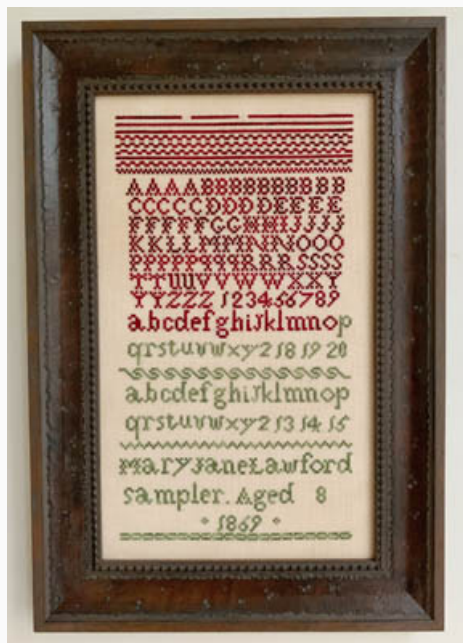 AAAABBBBBBBBB
CCCCCDDDDEEEE
FFFFFGGHHIJJJJ
KKLLMMNNNOOO
PPPPPPqqqRRRSSSS
TTUUVVVWWXXY
YYZZZ 123456789
abcdefghijklmnop
qrstuvwxyz 18 19 20
abcdefghijklmnop
qrstuvwxyz 13 14 15
Mary Jane Lawford
Sampler. Aged 8
1869